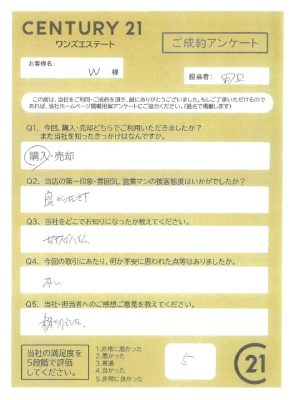 CENTURY 21
ワンズエステート
ご成約アンケート
お客様名:
W 様
担当者:
この度は、当社をご利用・ご成約を頂き、誠にありがとうございました。もしご了承いただけるので
あれば、当社ホームページ掲載用アンケートにご協力ください。(匿名で掲載します)
Q1. 今回、購入・売却どちらでご利用いただきましたか?
また当社を知ったきっかけはなんですか。
購入・売却
Q2. 当店の第一印象・雰囲気、営業マンの接客態度はいかがでしたか?
良かったです
Q3. 当社をどこでお知りになったか教えてください。
セキスイハイム
Q4. 今回の取引にあたり、何か不安に思われた点等はありましたか。
ない
Q5. 当社・担当者へのご感想ご意見を教えてください。
当社の満足度を
5段階で評価
してください。
1.非常に悪かった
2.悪かった
3.普通
4.良かった
5.非常に良かった
5
C21